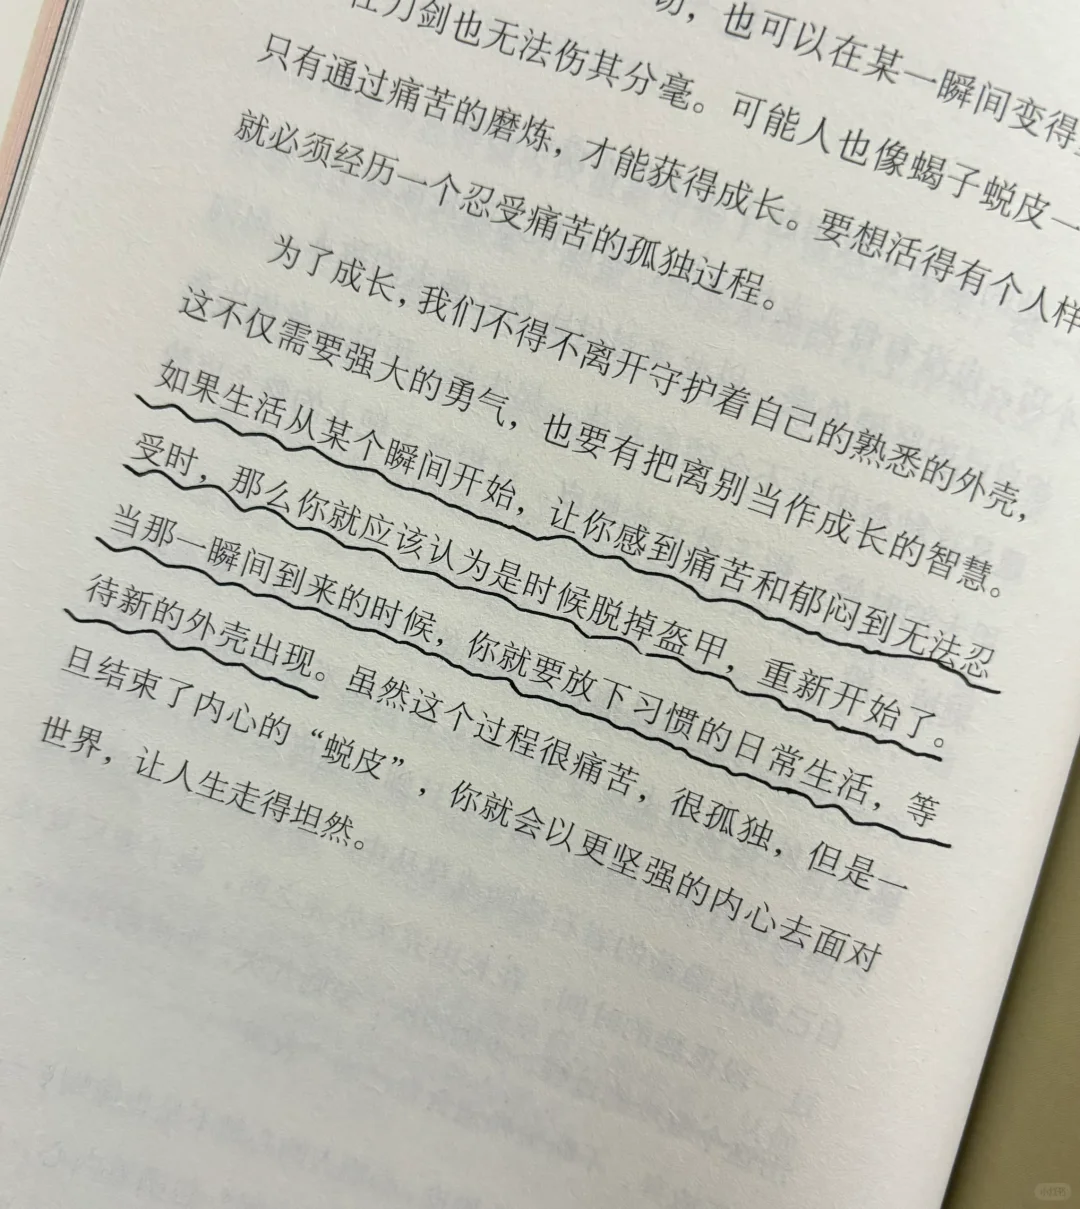 切，也可以在某一瞬间变得
刀剑也无法伤其分毫。可能人也像蝎子蜕皮一
只有通过痛苦的磨炼，才能获得成长。要想活得有个人样
就必须经历一个忍受痛苦的孤独过程。
为了成长，我们不得不离开守护着自己的熟悉的外壳，
这不仅需要强大的勇气，也要有把离别当作成长的智慧。
如果生活从某个瞬间开始，让你感到痛苦和郁闷到无法忍
受时，那么你就应该认为是时候脱掉盔甲，重新开始了。
当那一瞬间到来的时候，你就要放下习惯的日常生活，等
待新的外壳出现。虽然这个过程很痛苦，很孤独，但是一
旦结束了内心的“蜕皮”，你就会以更坚强的内心去面对
世界，让人生走得坦然。